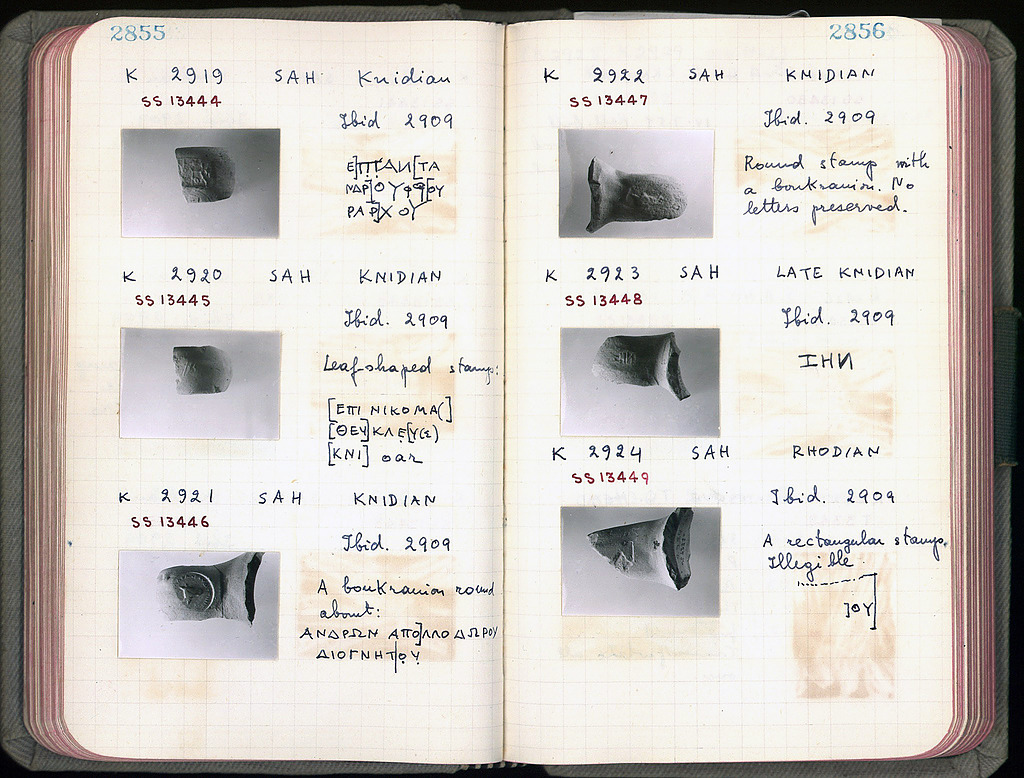 2855
K 2919 SAH Knidian
SS 13444
Ibid. 2909
Ε]ΠΙΔΑΙ[ΤΑ
ΝΔΡ]ΟΥΦΡ[ΟΥ
ΡΑΡ]ΧΟΥ
K 2920 SAH KNIDIAN
SS 13445
Ibid. 2909
Leaf-shaped stamp:
[ΕΠΙ ΝΙΚΟΜΑ(]
[ΘΕΥ]ΚΛΕ[Υ(Σ)
[ΚΝΙ] oar
K 2921 SAH KNIDIAN
SS 13446
Ibid. 2909
A boukranion round
about:
ΑΝΔΡΩΝ ΑΠΟ]ΛΛΟΔΩΡΟΥ
ΔΙΟΓΝΗΤΟΥ
2856
K 2922 SAH KNIDIAN
SS 13447
Ibid. 2909
Round stamp with
a boukranion. No
letters preserved.
K 2923 SAH LATE KNIDIAN
SS 13448
Ibid. 2909
ΙΗΝ
K 2924 SAH RHODIAN
SS 13449
Ibid. 2909
A rectangular stamp.
Illegible.
]ΟΥ